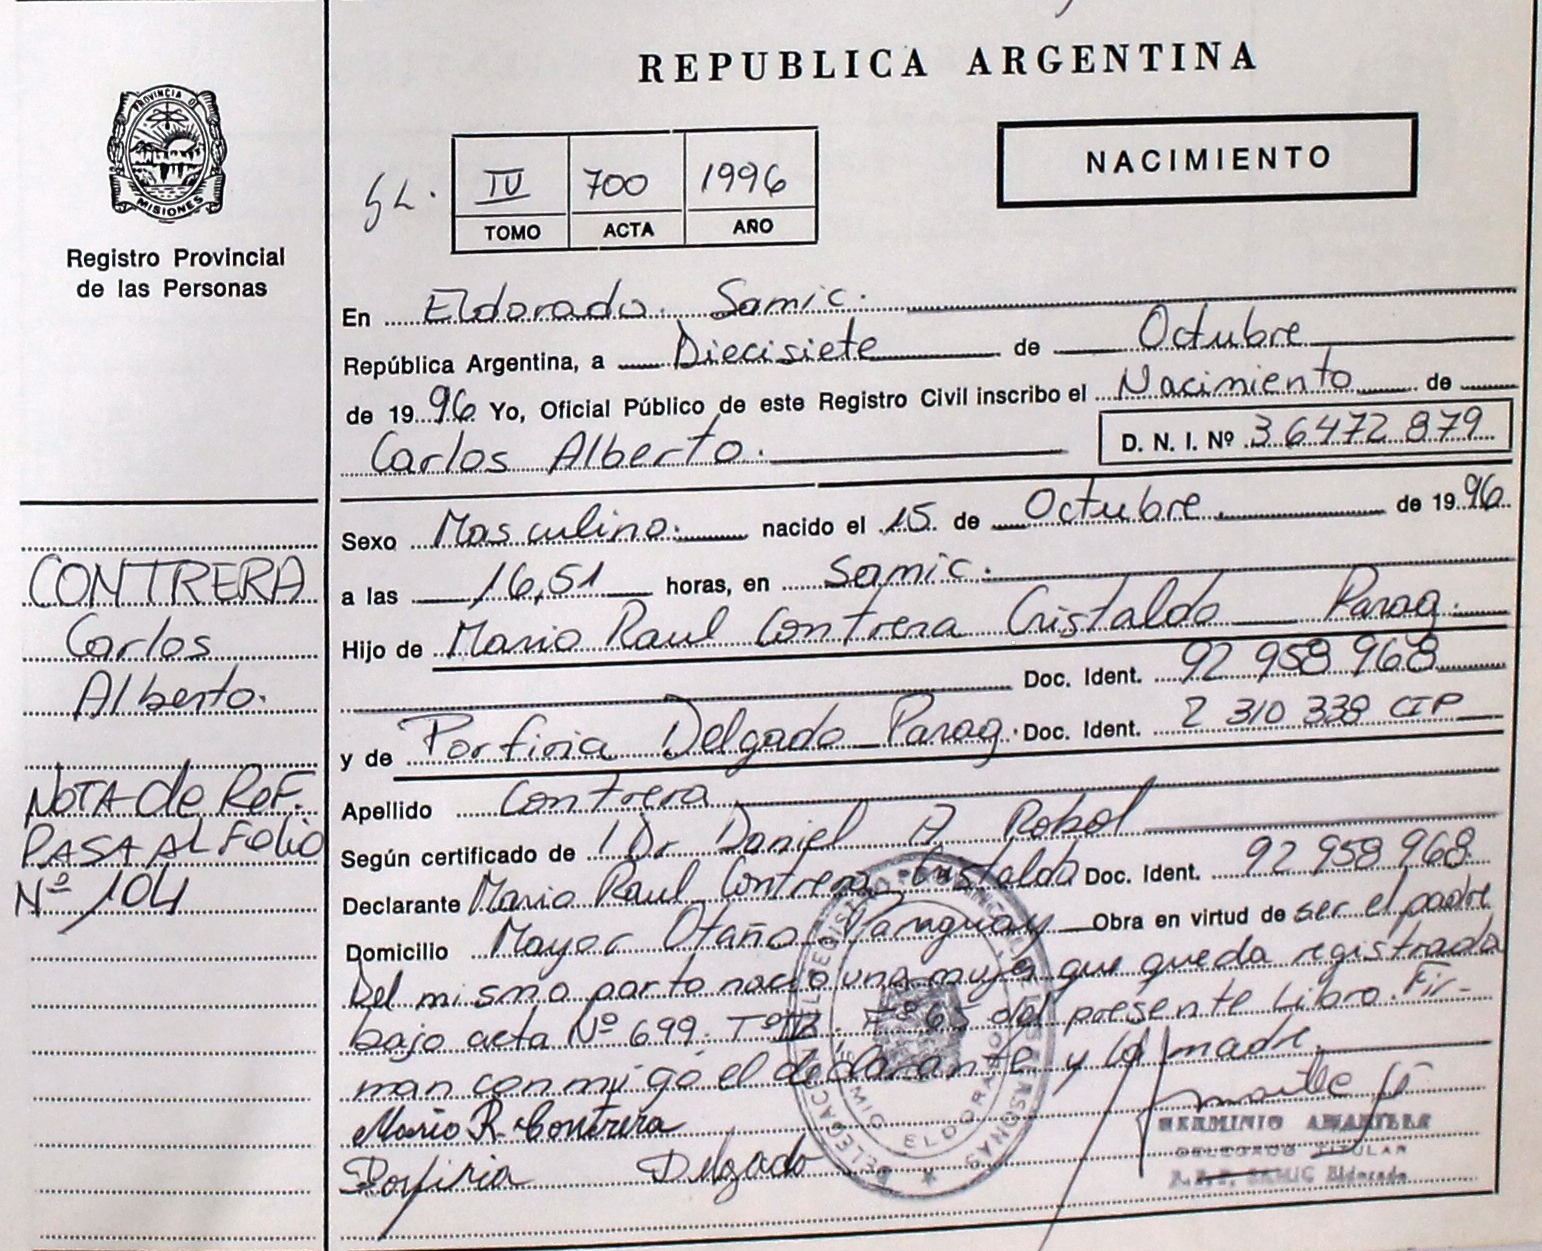 REPUBLICA ARGENTINA
PROVINCIA D
MISIONES
Registro Provincial
de las Personas
NACIMIENTO
IV 700 1996
TOMO ACTA AÑO
En Eldorado. Samic.
República Argentina, a Diecisiete de Octubre
de 1996 Yo, Oficial Público de este Registro Civil inscribo el Nacimiento de
Carlos Alberto. D. N. I. Nº 36472879
Sexo Masculino. nacido el 15 de Octubre. de 1996
a las 16,51 horas, en Samic.
Hijo de Mario Raul Contrera Cristaldo Parag.
Doc. Ident. 92 958 968
y de Porfiria Delgado Parag. Doc. Ident. 2 310 338 CIP
Apellido Contrera
Según certificado de Dr Daniel A Robol
Declarante Mario Raul Contrera Cristaldo Doc. Ident. 92 958 968
Domicilio Mayor Otaño Paraguay Obra en virtud de ser el padre
Del mismo parto nació una mujer que queda registrada
bajo acta Nº 699. Tº Fº 65 del presente Libro. Fir-
man conmigo el declarante y la madre.
Mario R. Contrera
Porfiria Delgado
HERMINIO
DELEGADO TITULAR
SAMIC Eldorado
ELDORADO
CONTRERA
Carlos
Alberto.
NOTA de REF.
PASA AL Folio
Nº 104